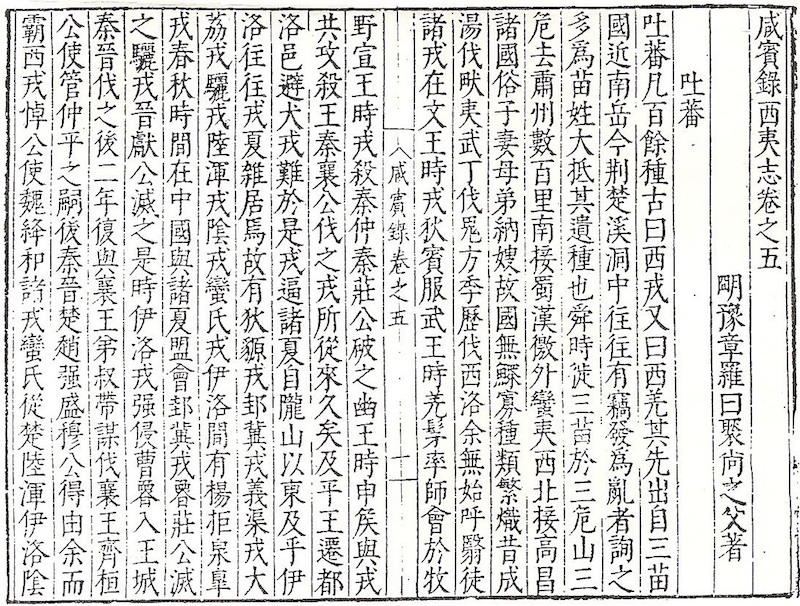 咸賓錄西夷志卷之五
明豫章羅曰聚尚之父著
吐蕃
吐蕃凡百餘種古曰西戎又曰西羌其先出自三苗
國近南岳今荆楚溪洞中往往有竊發為亂者詢之
多為苗姓大抵其遺種也舜時徙三苗於三危山三
危去肅州數百里南接蜀漢徼外蠻夷西北接高昌
諸國俗子妻母弟納嫂故國無鰥寡種類繁熾昔成
湯伐畎夷武丁伐鬼方季歷伐西洛余無始呼翳徒
諸戎在文王時戎狄賓服武王時羌髳率師會於牧
咸賓錄卷之五
一
野宣王時戎殺秦仲秦莊公破之幽王時申侯與戎
共攻殺王秦襄公伐之戎所從來久矣及平王遷都
洛邑避犬戎難於是戎逼諸夏自隴山以東及乎伊
洛往往戎夏雜居焉故有狄豲戎邽冀戎義渠戎大
荔戎驪戎陸渾戎陰戎蠻氏戎伊洛間有楊拒泉皐
戎春秋時間在中國與諸夏盟會邽冀戎魯莊公滅
之驪戎晉獻公滅之是時伊洛戎强侵曹魯入王城
秦晉伐之後二年復與襄王弟叔帶謀伐襄王齊桓
公使管仲平之嗣後秦晉楚趙强盛穆公得由余而
霸西戎悼公使魏絳和諸戎蠻氏從楚陸渾伊洛陰